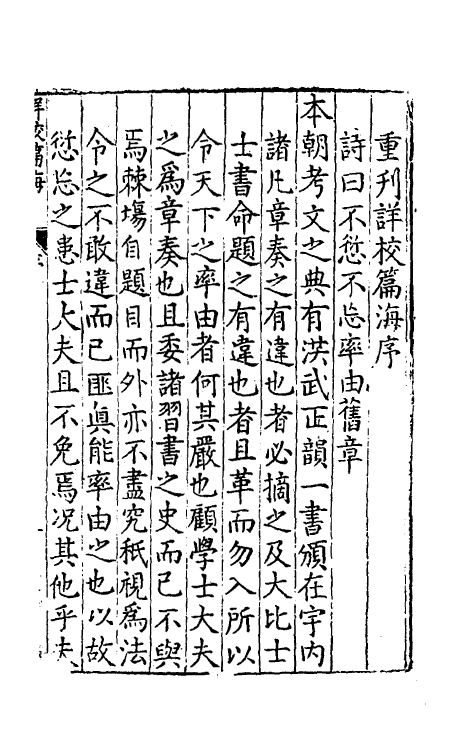 重刊詳校篇海序
詩曰不愆不忘率由舊章
本朝考文之典有洪武正韻一書頒在宇内
諸凡章奏之有違也者必摘之及大比士
士書命題之有違也者且革而勿入所以
令天下之率由者何其嚴也顧學士大夫
之爲章奏也且委諸習書之史而已不與
焉棘場自題目而外亦不盡究秪視爲法
令之不敢違而已匪眞能率由之也以故
愆忘之患士大夫且不免焉况其他乎夫
詳校篇海